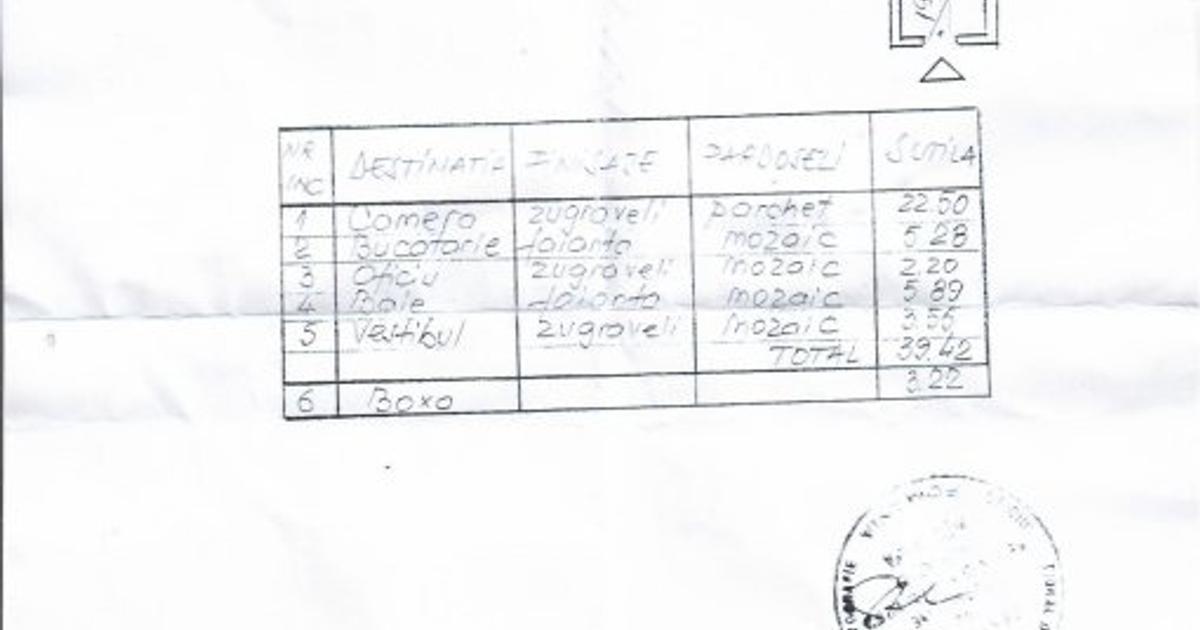 NR INC DESTINATIA FINISAJE PARDOSELI SUTILA
1 Camera zugraveli parchet 22.50
2 Bucatarie faianta mozaic 5.28
3 Oficiu zugraveli mozaic 2.20
4 Baie faianta mozaic 5.89
5 Vestibul zugraveli mozaic 3.55
TOTAL 39.42
6 Boxa 3.22